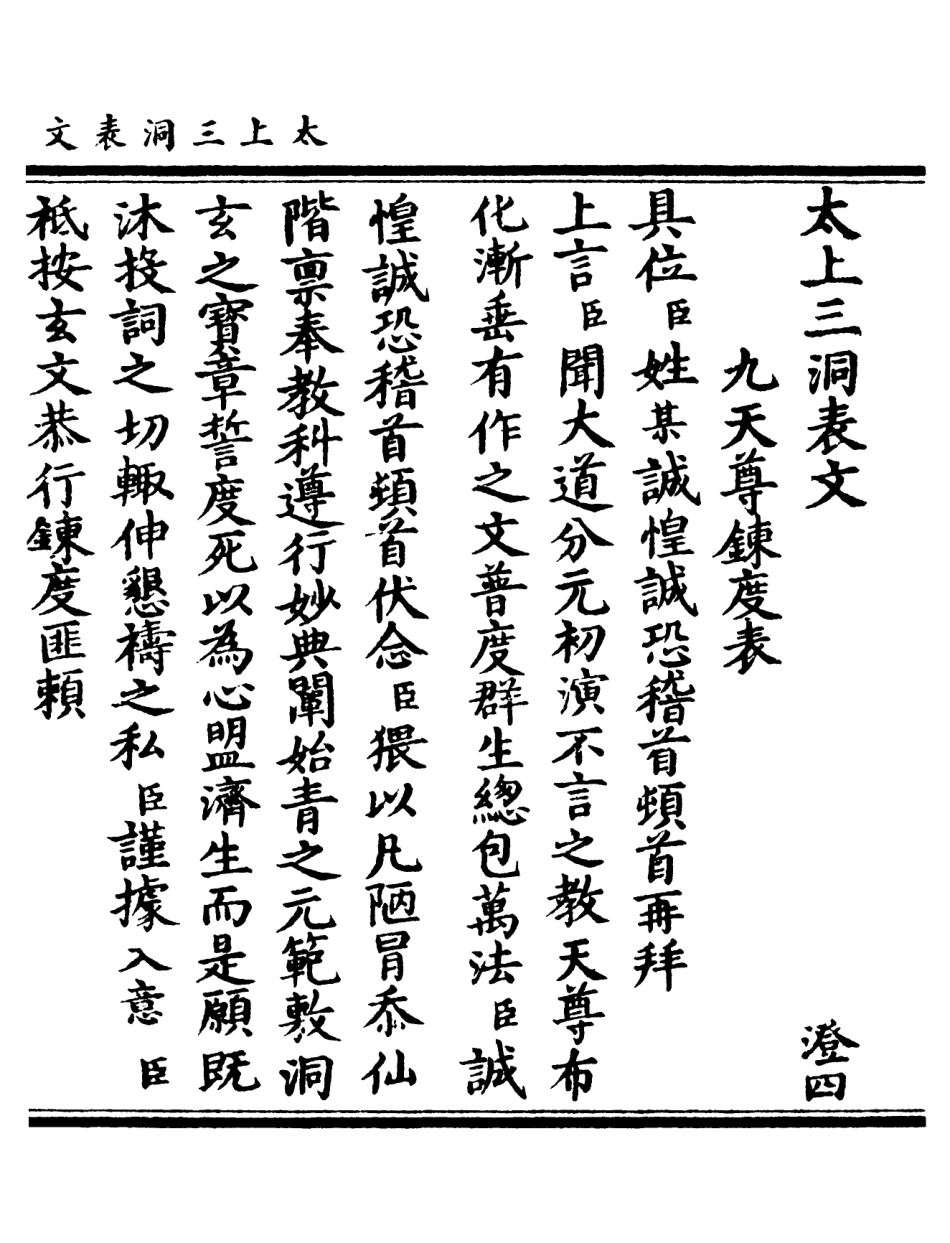 太上三洞表文
太上三洞表文 澄四
九天尊鍊度表
具位臣姓某誠惶誠恐稽首頓首再拜
上言臣聞大道分元初演不言之教天尊布
化漸垂有作之文普度群生總包萬法臣誠
惶誠恐稽首頓首伏念臣猥以凡陋冒忝仙
階禀奉教科遵行妙典闡始青之元範敷洞
玄之寶章誓度死以為心盟濟生而是願既
沐投詞之切輙伸懇禱之私臣謹據入意臣
祇按玄文恭行鍊度匪頼